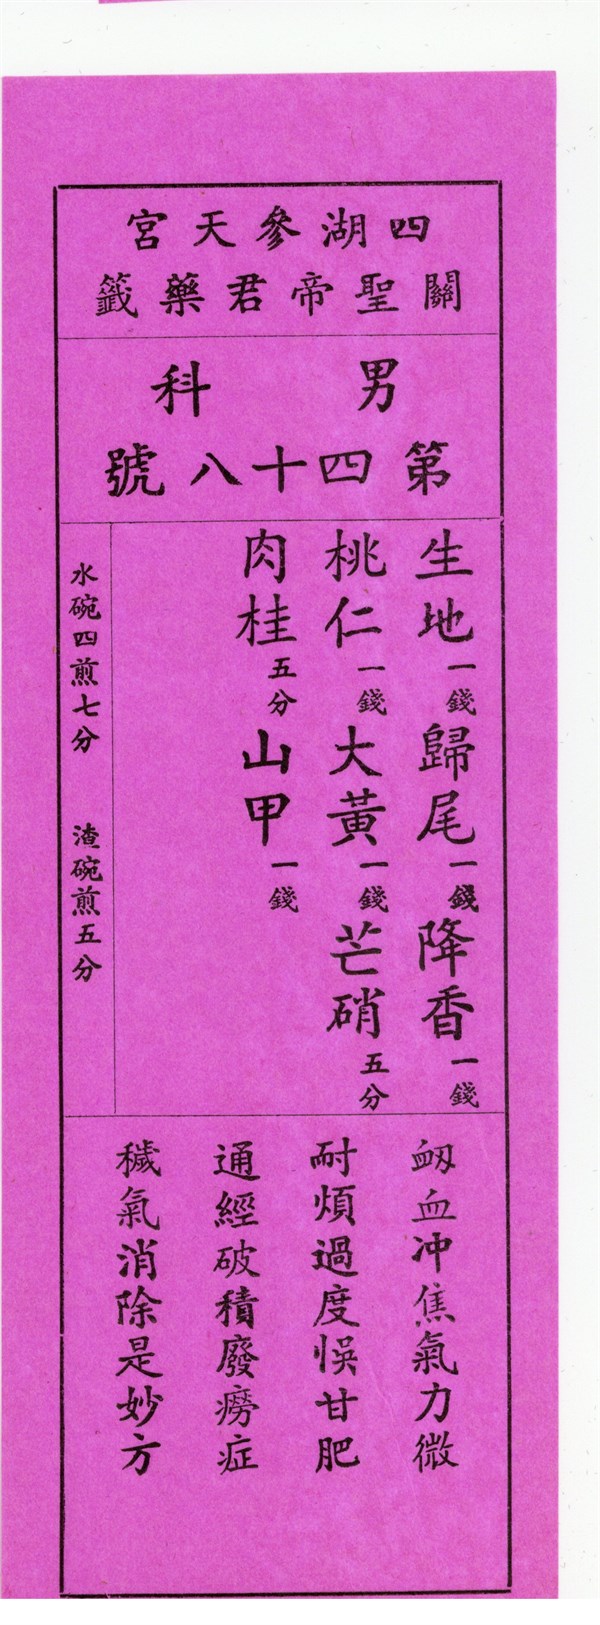 四湖參天宮
關聖帝君藥籤
男科
第四十八號
生地一錢 歸尾一錢 降香一錢
桃仁一錢 大黃一錢 芒硝五分
肉桂五分 山甲一錢
水碗四煎七分 渣碗煎五分
衂血冲焦氣力微
耐煩過度悞甘肥
通經破積廢癆症
穢氣消除是妙方